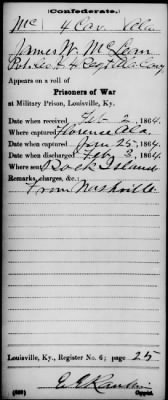 (Confederate.)
Mc 4 Cav. Ala.
James W. McLean
Pvt. Co. F. 4 Regt. Ala. Cav
Appears on a roll of
Prisoners of War
at Military Prison, Louisville, Ky.
Date when received Feb 2, 1864.
Where captured Florence Ala
Date when captured Jan 25, 1864.
Date when discharged Feb 3, 1864.
Where sent Rock Island
Remarks, charges, &c.:
From Nashville
Louisville, Ky., Register No. 6; page 25
Copyist.